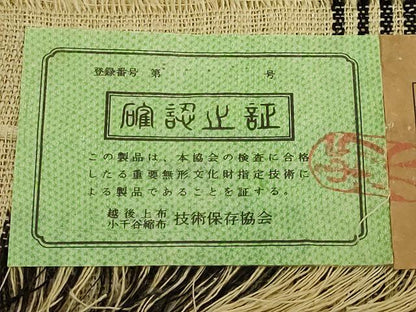 登録番号 第 号
確認之証
この製品は、本協会の検査に合格
したる重要無形文化財指定技術に
よる製品であることを証する。
越後上布
小千谷縮布 技術保存協会